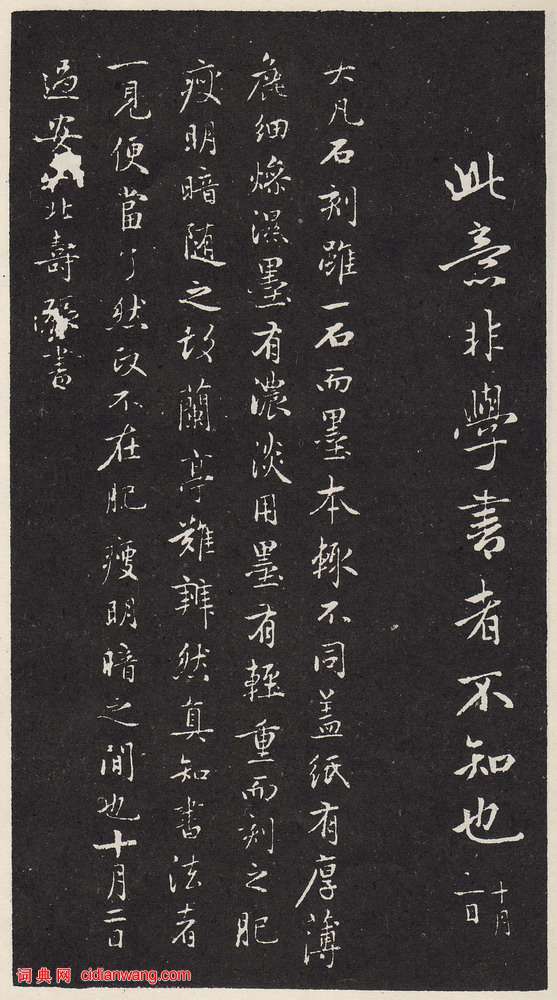 此意非學書者不知也 十月
二日
大凡石刻雖一石而墨本輙不同盖紙有厚薄
麁細燥濕墨有濃淡用墨有輕重而刻之肥
瘦明暗随之故蘭亭難辨然真知書法者
一見便當了然政不在肥瘦明暗之間也十月二日
過安北壽張書
词典网 cidianwang.com